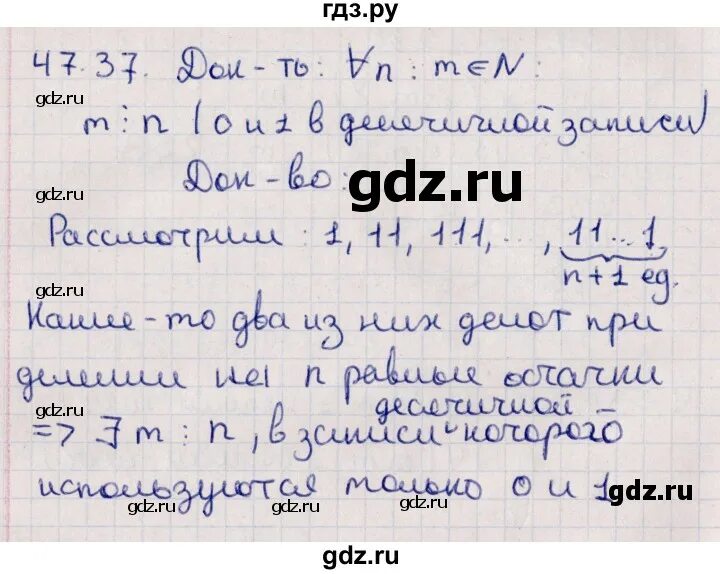 гдз.ру
47.37. Док-ть: ∀n : m∈N:
gdz.ru
gdz.ru
m⋮n (0 и 1 в десятичной записи)
gdz.ru
gdz.ru
Док-во:
gdz.ru
Рассмотрим: 1, 11, 111, ..., 11...1
n+1 ед.
gdz.ru
gdz.ru
Какие-то два из них делят при
делении на n равные остатки
десятичной
gdz.ru
gdz.ru
=> ∃ m ⋮ n, в записи которого
используются только 0 и 1
gdz.ru
gdz.ru
gdz.ru
gdz.ru